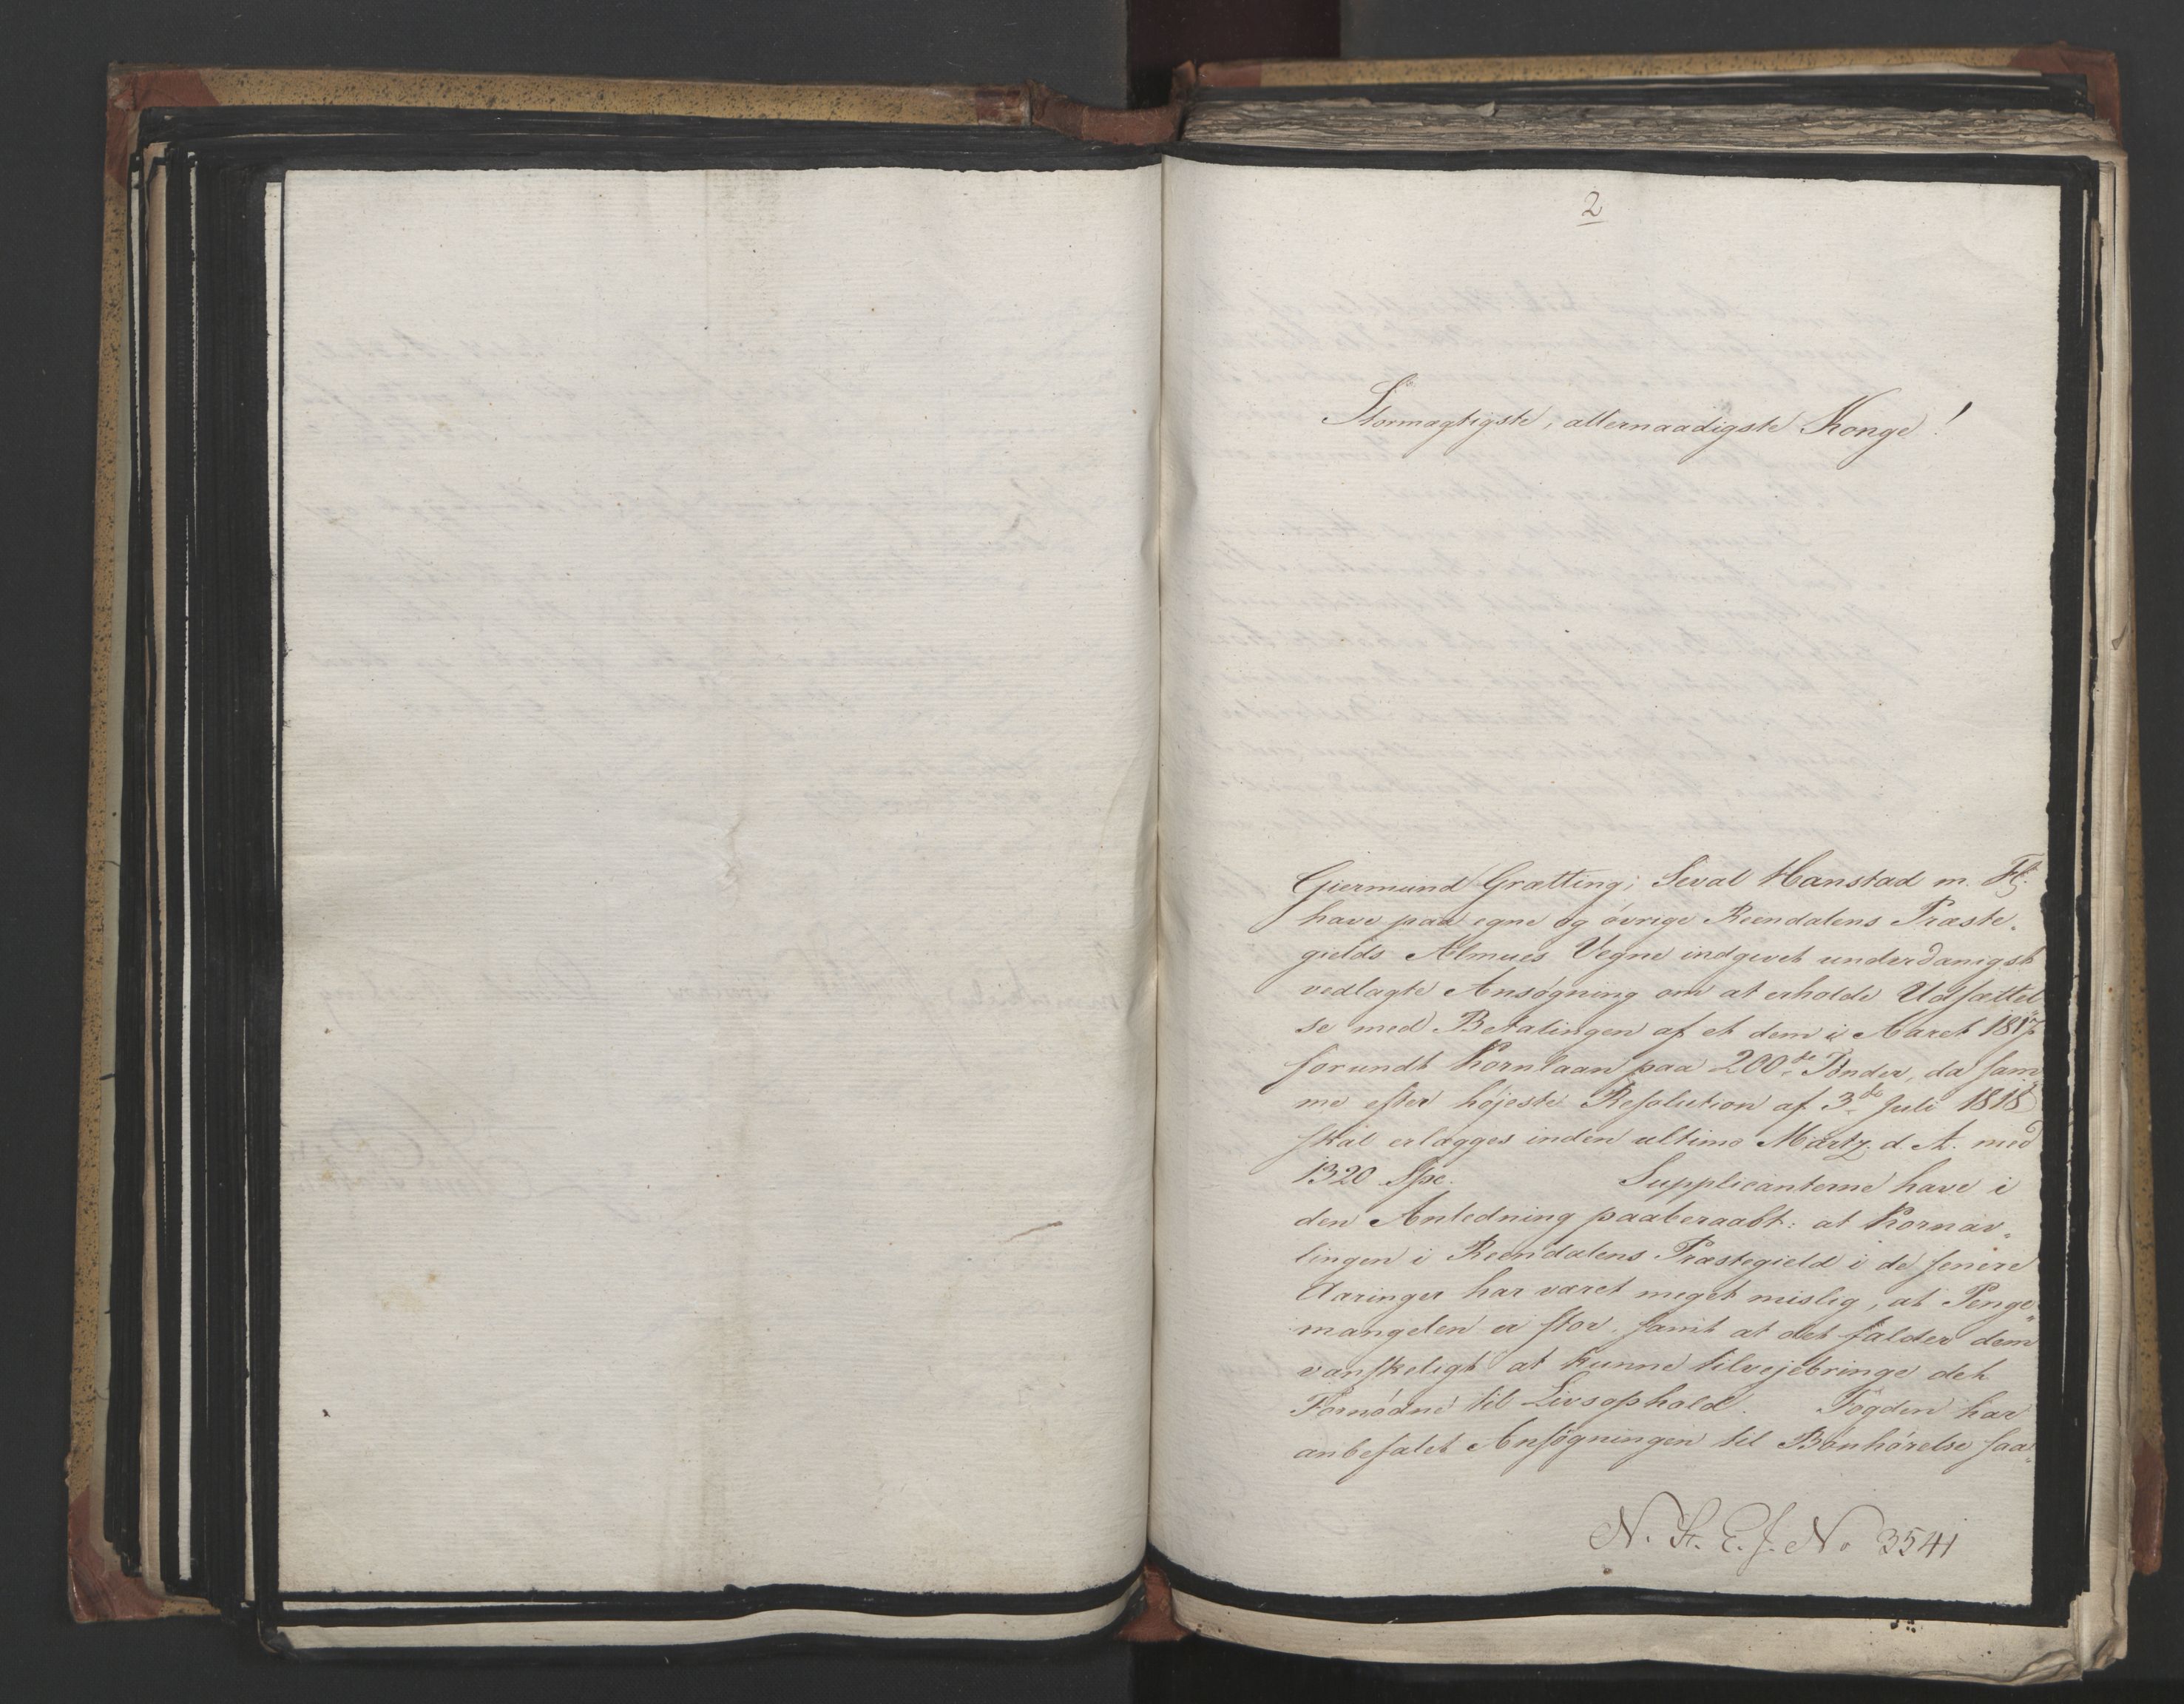 2
Stormægtigste, allernaadigste Konge!
Gjermund Grøtting, Seval Hanstad m. Fl.
have paa egne og øvrige Reendalens Præste-
gields Almues Vegne indgivet underdanigst
vedlagte Ansøgning om at erholde Udsættel
se med Betalingen af et dem i Aaret 1817
forundt Kornlaan paa 200de Tønder, da sam
me efter højeste Resolution af 3de Juli 1818
skal erlægges inden ultimo Martz d. A. med
1320 Spc. Supplicanterne have i
den Anledning paaberaabt: at Kornav-
lingen i Reendalens Præstegield i de senere
Aaringer har været meget mislig, at Penge-
mangelen er stor, samt at det falder dem
vanskeligt at kunne tilvejebringe det
Fornødne til Livsophold. Fogden har
anbefalet Ansøgningen til Bønhørelse saa-
N. H. E. J. No 3541